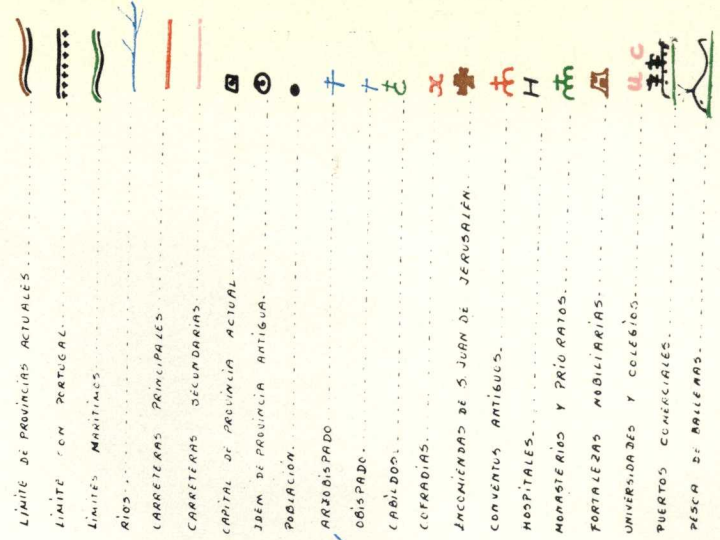 LIMITE DE PROVINCIAS ACTUALES
LIMITE CON PORTUGAL
LIMITES MARITIMOS
RIOS
CARRETERAS PRINCIPALES
CARRETERAS SECUNDARIAS
CAPITAL DE PROVINCIA ACTUAL
IDEM DE PROVINCIA ANTIGUA
POBLACION
ARZOBISPADO
OBISPADO
CABILDOS
COFRADIAS
ENCOMIENDAS DE S. JUAN DE JERUSALÉN
CONVENTOS ANTIGUOS
HOSPITALES
MONASTERIOS Y PRIORATOS
FORTALEZAS NOBILIARIAS
UNIVERSIDADES Y COLEGIOS u c
PUERTOS COMERCIALES
PESCA DE BALLENAS